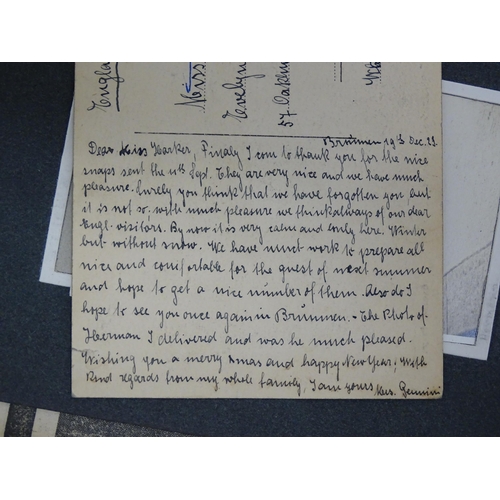 England
Miss
Evelyn
57 Oakhu
Brünnen 19th Dec. 29
Dear Miss Harker, Finaly I com to thank you for the nice
snaps sent the 11th Sept. They are very nice and we have much
pleasure. Surely you think that we have forgotten you, but
it is not so, with much pleasure we think always of our dear
Engl. visitors. By now it is very calm and lonly here. Winter
but without snow. We have much work to prepare all
nice and comfortable for the guest of next summer
and hope to get a nice number of them. Also do I
hope to see you once again in Brünnen. - The Photo of
Herman I delivered and was he much pleased.
Wishing you a merry Xmas and happy New Year, With
kind regards from my whole family, I am yours